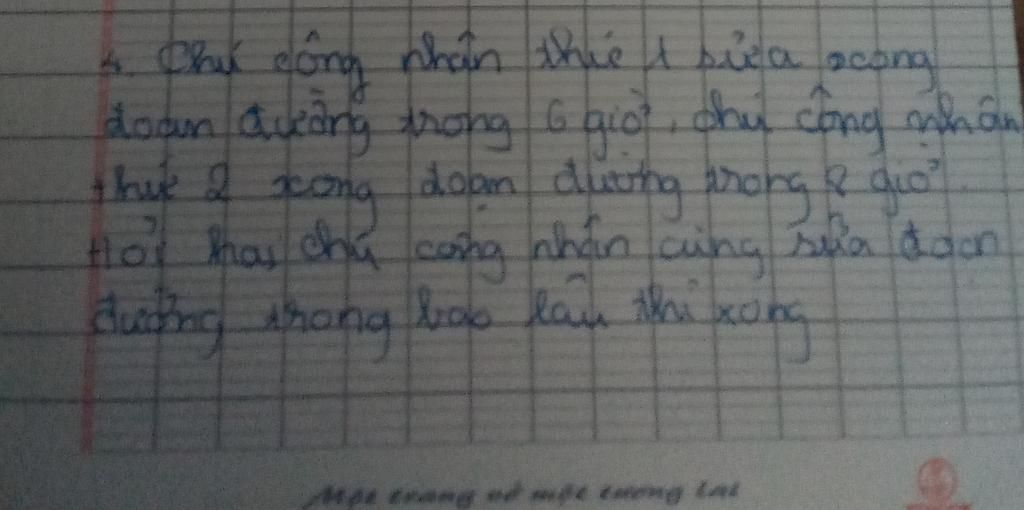 4. Chú công nhân thứ 1 sửa xong
đoạn đường trong 6 giờ, chú công nhân
thứ 2 xong đoạn đường trong 8 giờ.
Hỏi hai chú công nhân cùng sửa đoạn
đường trong bao lâu thì xong